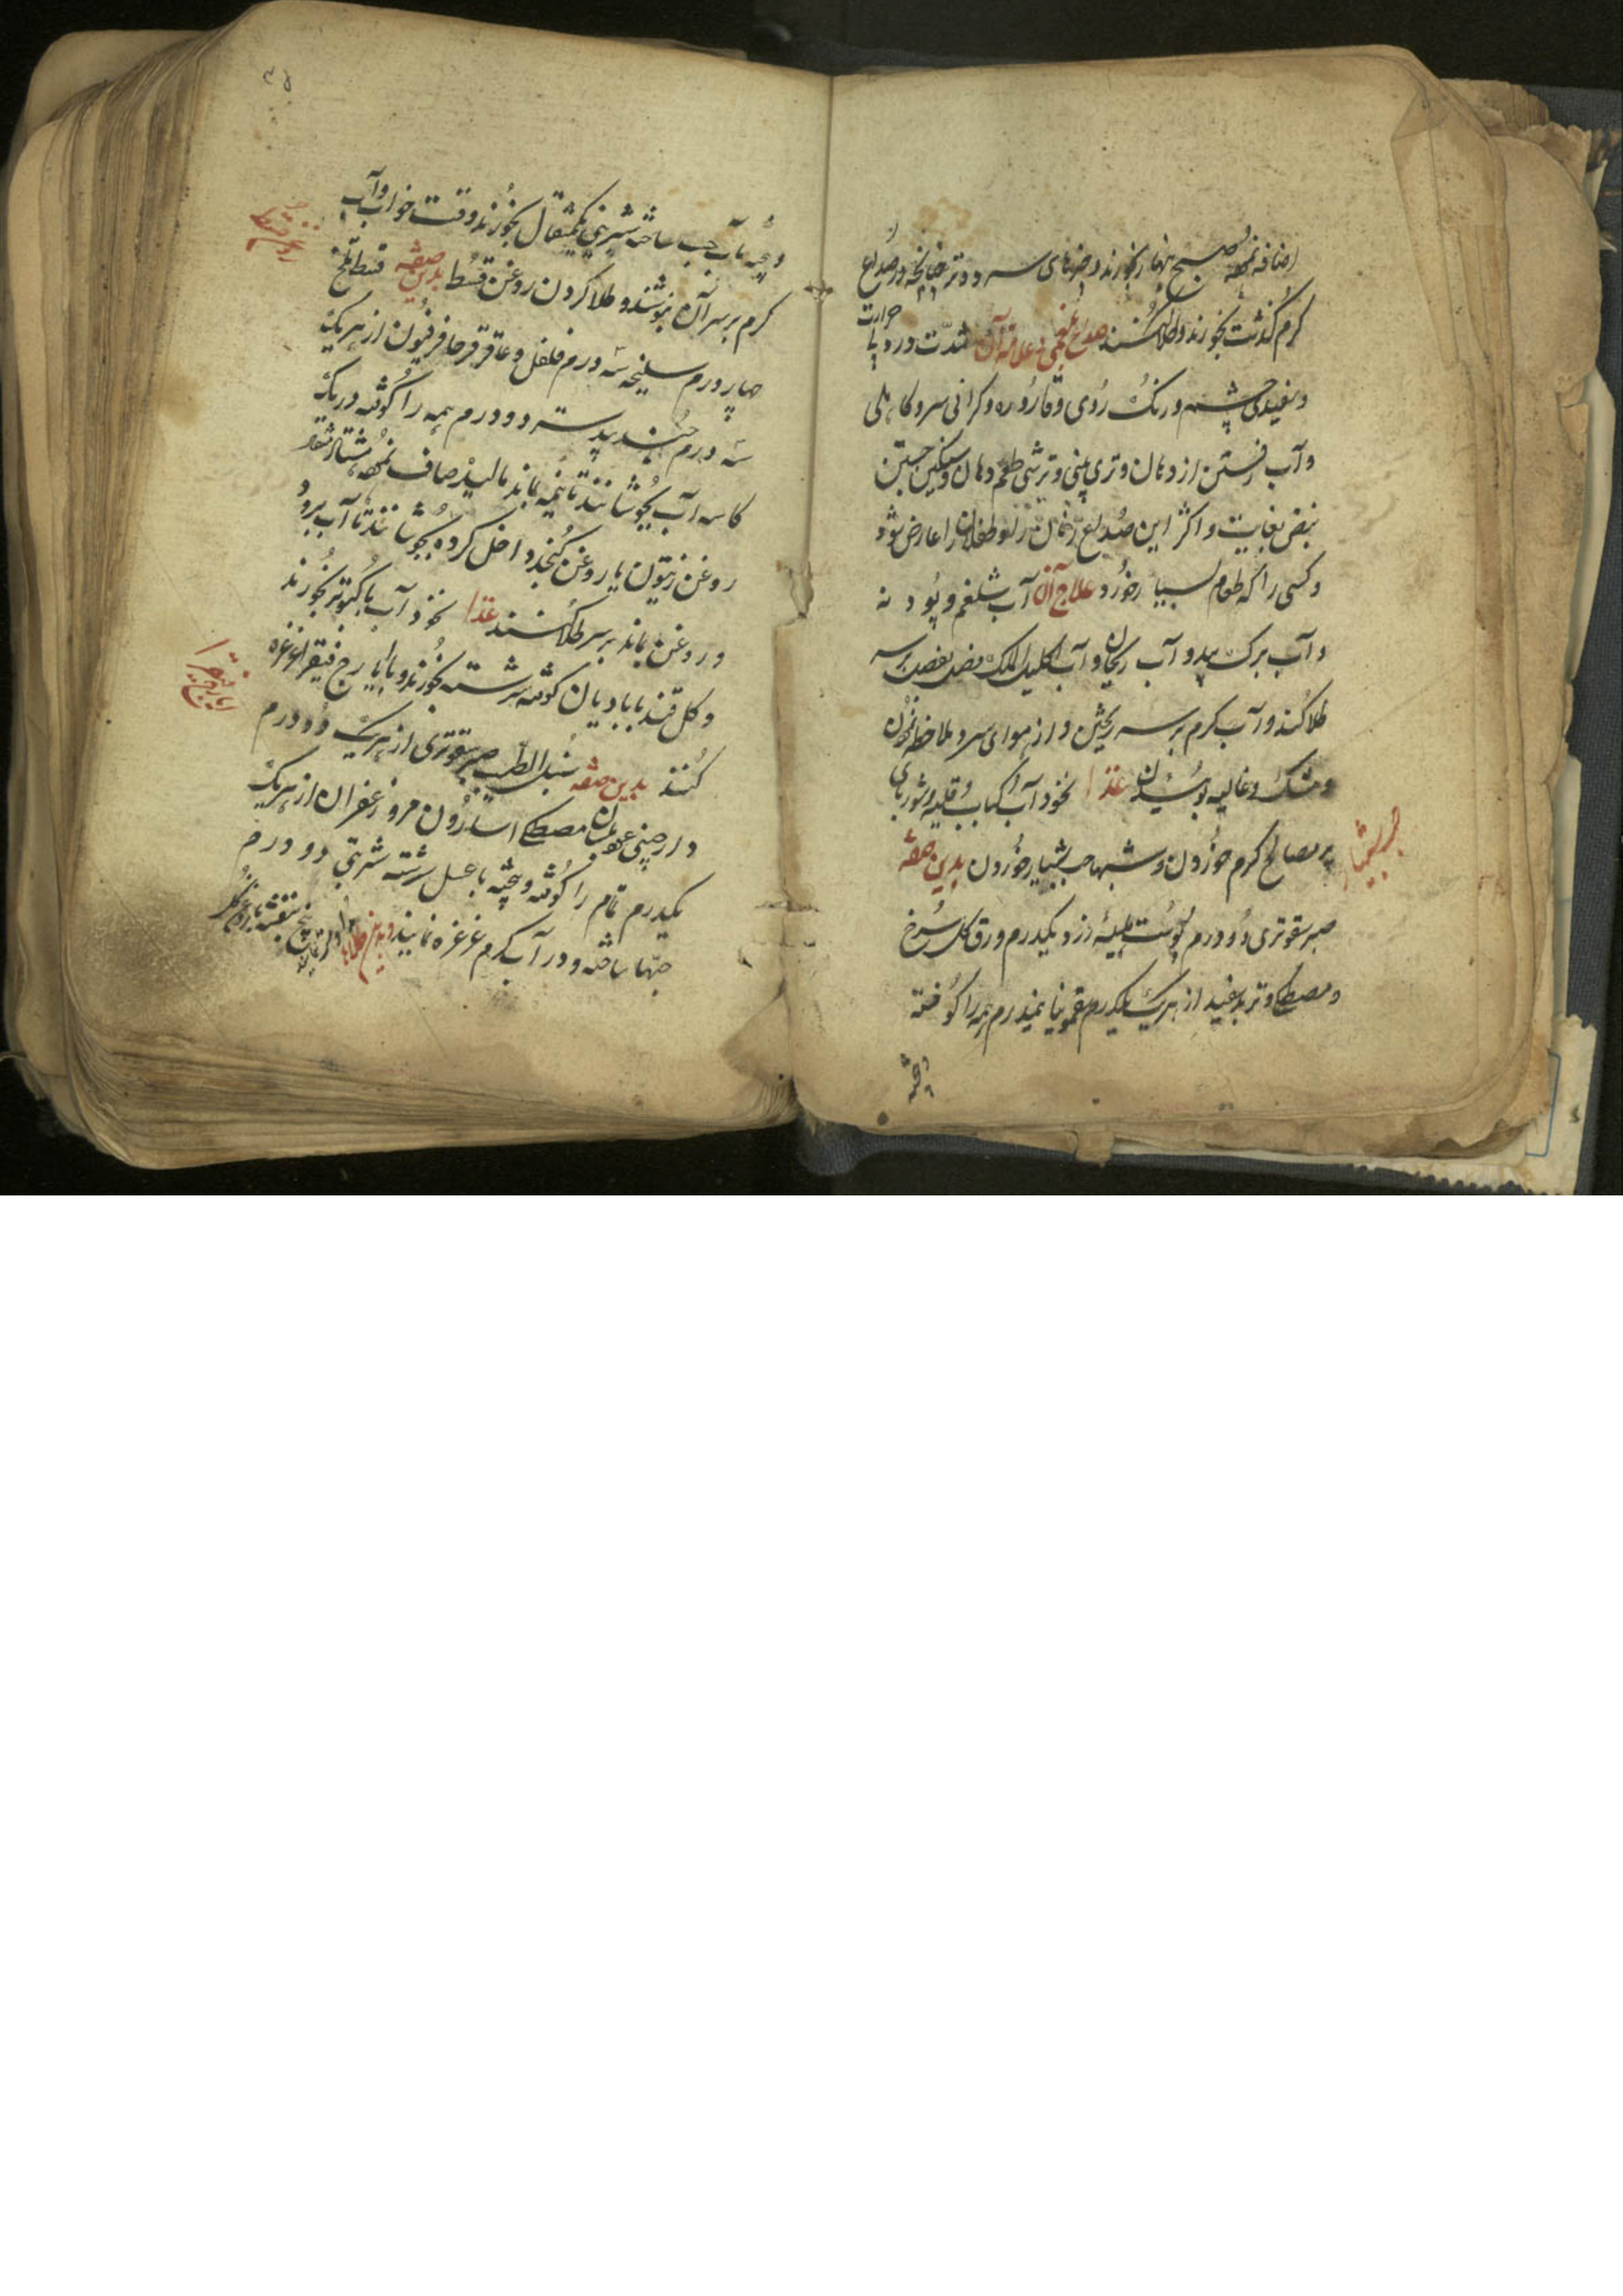 اضافه نموده صبح نهار بخورند و چیزهای سرد و تر چنانچه در صداع
کرم کذشت بخورند و طلا کنند صداع بلغمی و علامة آن شدت درد با حرارت
و سفیدی چشم و رنک روی و قاروره و کرانی سر و کاهلی
و آب رفتن از دهان و تری بینی و ترشی طعم دهان و سکین جستن
نبض بغایت و اکثر این صداع زنان و طفلان را عارض شود
و کسی را که طعام بسیار خورد علاج آن آب شلغم و پودنه
و آب برک بید و آب ریحان و آب اکلیل الملک بر سر
طلا کند و آب کرم بر سر ریختن و از هوای سرد ملاحظه نمودن
و مشک و غالیه بوئیدن غذا نخود آب کباب و قلیه و شوربای
پر مصالح کرم خوردن و شبها حب شبیار خوردن بدین صفة
حب شبیار
صبر سقوتری دو درم پوست هلیلهٔ زرد یکدرم ورق کل سرخ
و مصطکی و تربد سفید از هریک یکدرم سقمونیا نیمدرم همه را کوفته
و بیخته
و بیخته بآب حب ساخته شربتی یکمثقال بخورند وقت خواب و آب
کرم بر سر آن بنوشند و طلا کردن روغن قسط بدین صفة قسط تلخ
روغن قسط
چهار درم سلیخه سه درم فلفل و عاقرقرحا فرفیون از هریک
سه درم جندبیدستر دو درم همه را کوفته در یک
کاسه آب بجوشانند تا نیمه بماند مالیده صاف نموده هشتاد مثقال
روغن زیتون یا روغن کنجد داخل کرده بجوشانند تا آب برود
و روغن بماند بر سر طلا کنند غذا نخود آب با کبوتر بخورند
و کل قند با بادیان کوفته سرشته بخورند و با ایارج فیقرا غرغره
ایارج فیقرا
کنند بدین صفة سنبل الطیب صبر سقوتری از هریک دو درم
دارچینی مصطکی اسارون مرو زعفران از هریک
یکدرم تمام را کوفته و بیخته با عسل سرشته شربتی دو درم
حبها ساخته و در آب کرم غرغره نمایند و بدین طلا